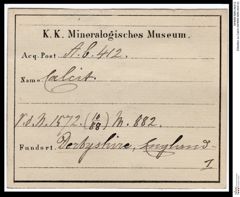 K. K. Mineralogisches Museum.
Acq. Post. A. b. 412.
Name Calcit
V. d. N. 1572. (6/88) M. 882.
Fundort. Derbyshire, England
I